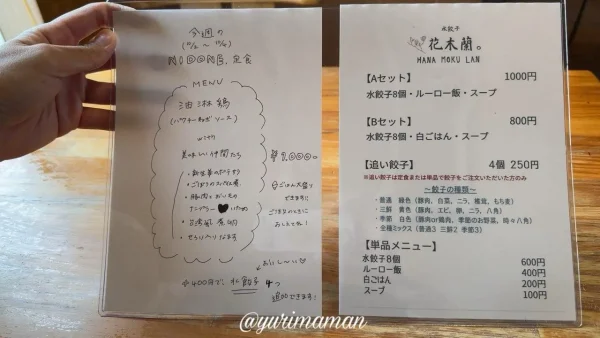 今週の
NIDONE.定食
MENU
油淋鶏
(パクチーネギソース)
美味しい仲間たち
・豚肉と
ナンプラー
いため
¥1,000-
ごはん大盛り
できます
ご注文のときに
おいし〜いよ
+400円で、水餃子 4つ
追加できます!
水餃子
花木蘭。
HANA MOKU LAN
【Aセット】 1000円
水餃子8個・ルーロー飯・スープ
【Bセット】 800円
水餃子8個・白ごはん・スープ
【追い餃子】 4個 250円
※追い餃子は定食または単品で餃子をご注文いただいた方のみ
〜餃子の種類〜
・普通 緑色（豚肉、白菜、ニラ、椎茸、もち麦）
・三鮮 黄色（豚肉、エビ、卵、ニラ、八角）
・季節 白色（豚肉or鶏肉、季節のお野菜、時々八角）
・全種ミックス（普通3 三鮮2 季節3）
【単品メニュー】
水餃子8個 600円
ルーロー飯 400円
白ごはん 200円
スープ 100円
@yurimaman